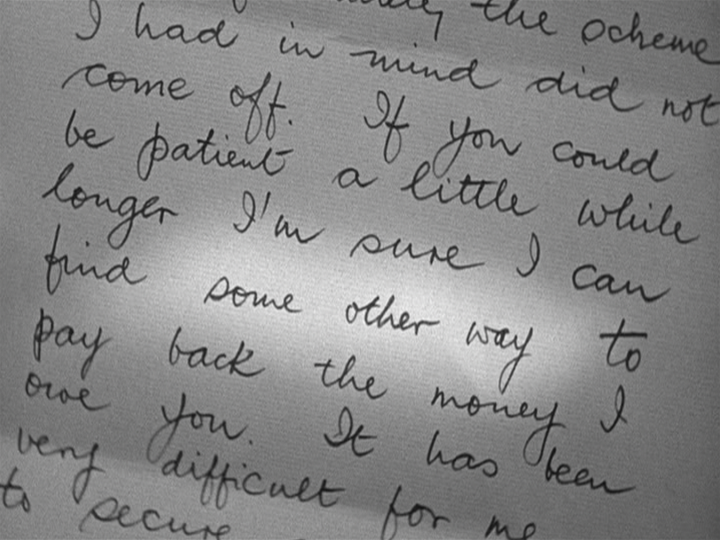 the scheme
I had in mind did not
come off. If you could
be patient a little while
longer I'm sure I can
find some other way to
pay back the money I
owe you. It has been
very difficult for me
to secure